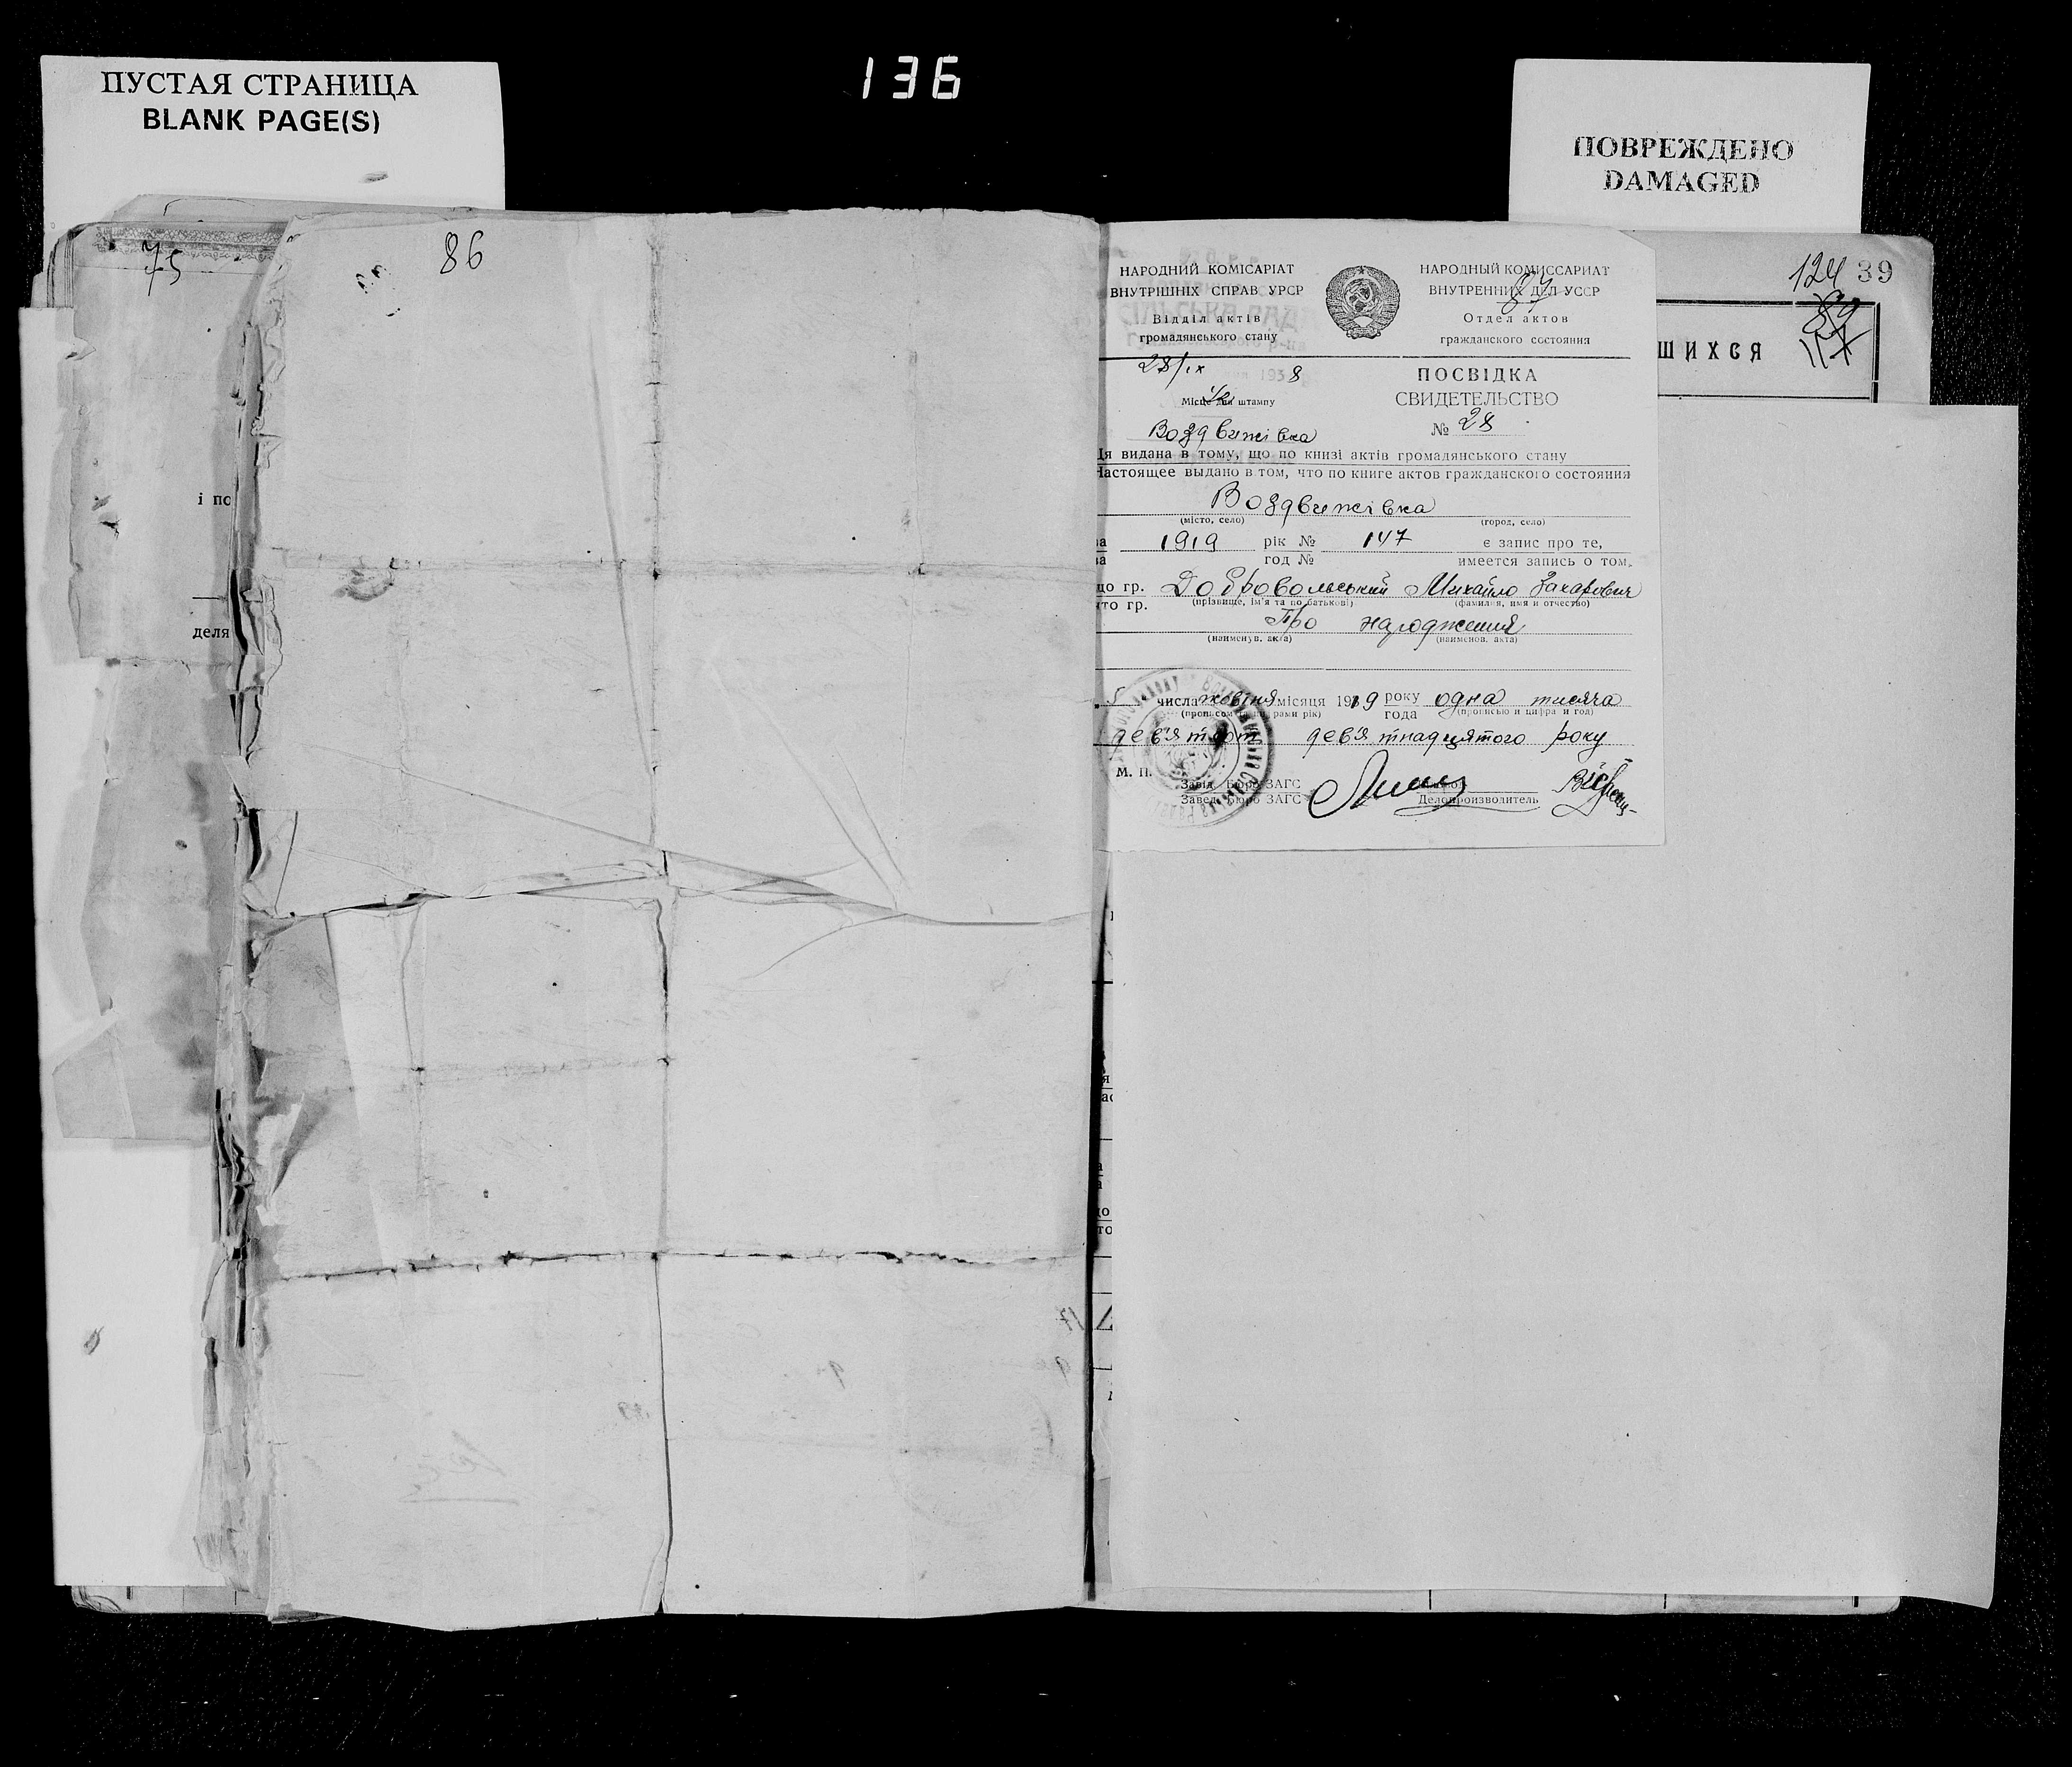 136
ПУСТАЯ СТРАНИЦА
BLANK PAGE(S)
ПОВРЕЖДЕНО
DAMAGED
75
86
і по
деля
124 39
89
117
ШИХСЯ
НАРОДНИЙ КОМІСАРІАТ
ВНУТРІШНІХ СПРАВ УРСР
Відділ актів
громадянського стану
НАРОДНЫЙ КОМИССАРИАТ
ВНУТРЕННИХ ДЕЛ УССР
Отдел актов
гражданского состояния
87
СІЛЬСЬКА РАДА
28/ІХ 1938
Місце для штампу
Воздвижівка
ПОСВІДКА
СВИДЕТЕЛЬСТВО
№ 28
Ця видана в тому, що по книзі актів громадянського стану
Настоящее выдано в том, что по книге актов гражданского состояния
Воздвижівка
(місто, село) (город, село)
за 1919 рік № 147 є запис про те,
за год № имеется запись о том,
що гр. Добровольський Михайло Захарович
что гр. (прізвище, ім'я та по батькові) (фамилия, имя и отчество)
Про народження
(наименув. акта) (наименов. акта)
5 числа жовтня місяця 1919 року одна тисяча
года (прописью и цифра и год)
дев'ятсот дев'ятнадцятого року
М. П.
Завід. Бюро ЗАГС
Завед. Бюро ЗАГС
Делопроизводитель